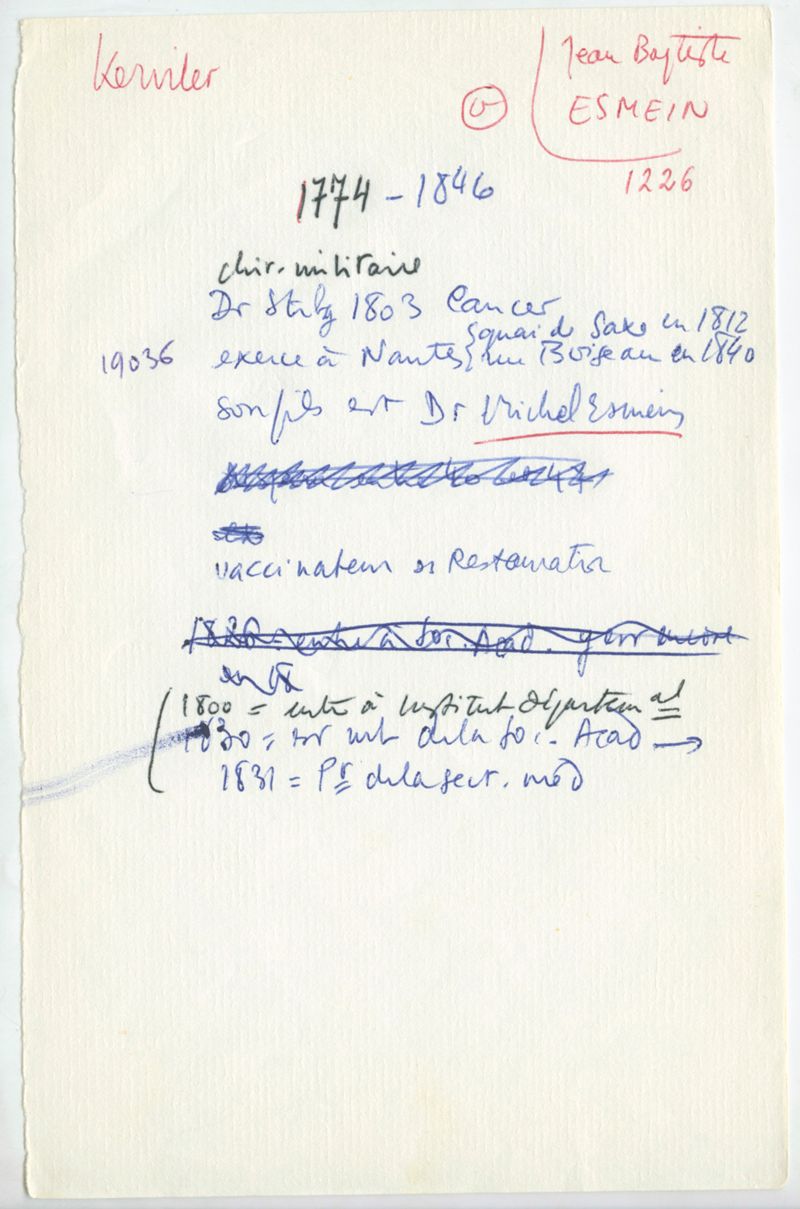 Kerviler
Jean Baptiste
ESMEIN
1226
1774 - 1846
chir. militaire
Dr Stbg 1803 Cancer
quai de Saxe en 1812
19036 exerce à Nantes rue Boiseau en 1840
son fils est Dr Michel Esmein
vaccinateur ss Restauration
1830 = entre à Soc. Acad.
en 18
1800 = entre à Institut départemental
1830 = de la Soc. Acad →
1831 = Pr de la sect. méd